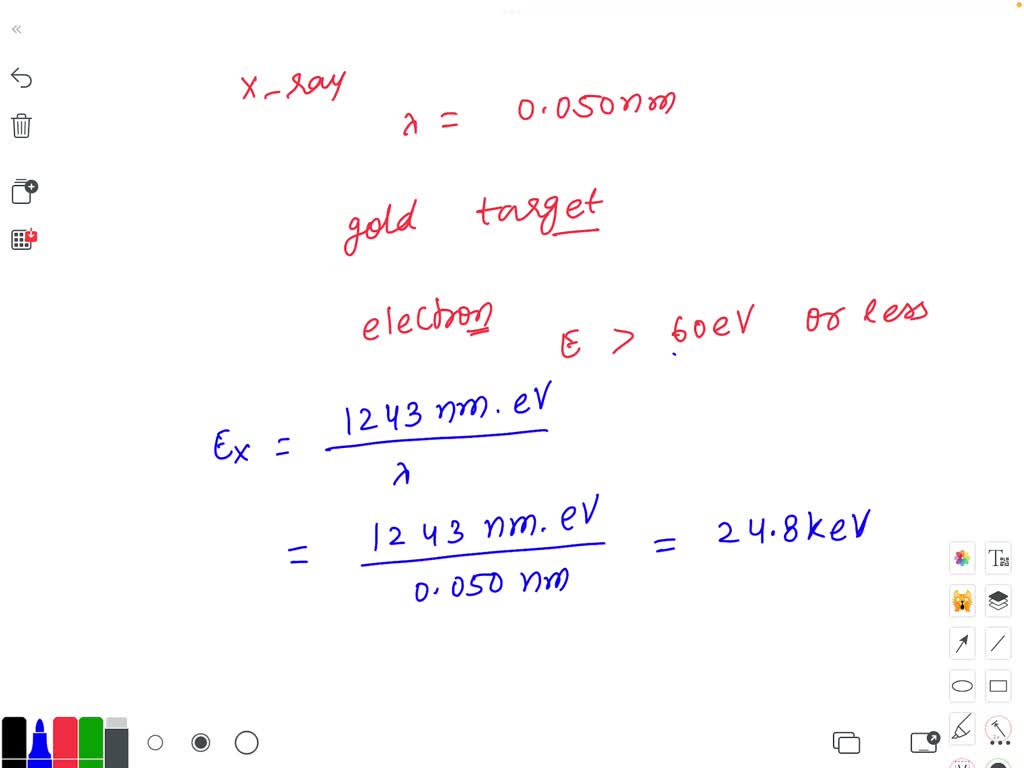 x-ray
λ = 0.050nm
gold target
electron E > 60eV or less
Ex = 1243 nm.eV / λ
= 1243 nm.eV / 0.050 nm = 24.8keV